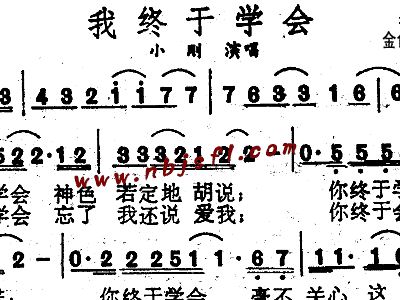 我终于学会
小刚 演唱
金
3 | 4 3 2 i i 7 7 | 7 6 3 3 1 6 | 6
5 2 2· 1 2 | 3 3 3 2 1 2 2 — | 0· 5 5 5
学会 神色 若定地 胡说； 你终于学
学会 忘了 我还说 爱我； 你终于会
www.nbjcfl.com
2 — | 0· 2 2 2 5 1 1 1· 6 7 | 1 1 1· 1
你终于学会 毫不 关心 这